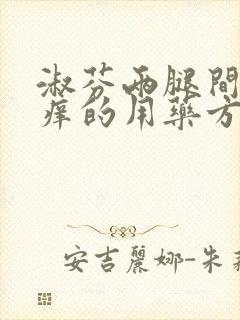 淑芬兩腿間
痒的用藥方
安吉麗娜-朱